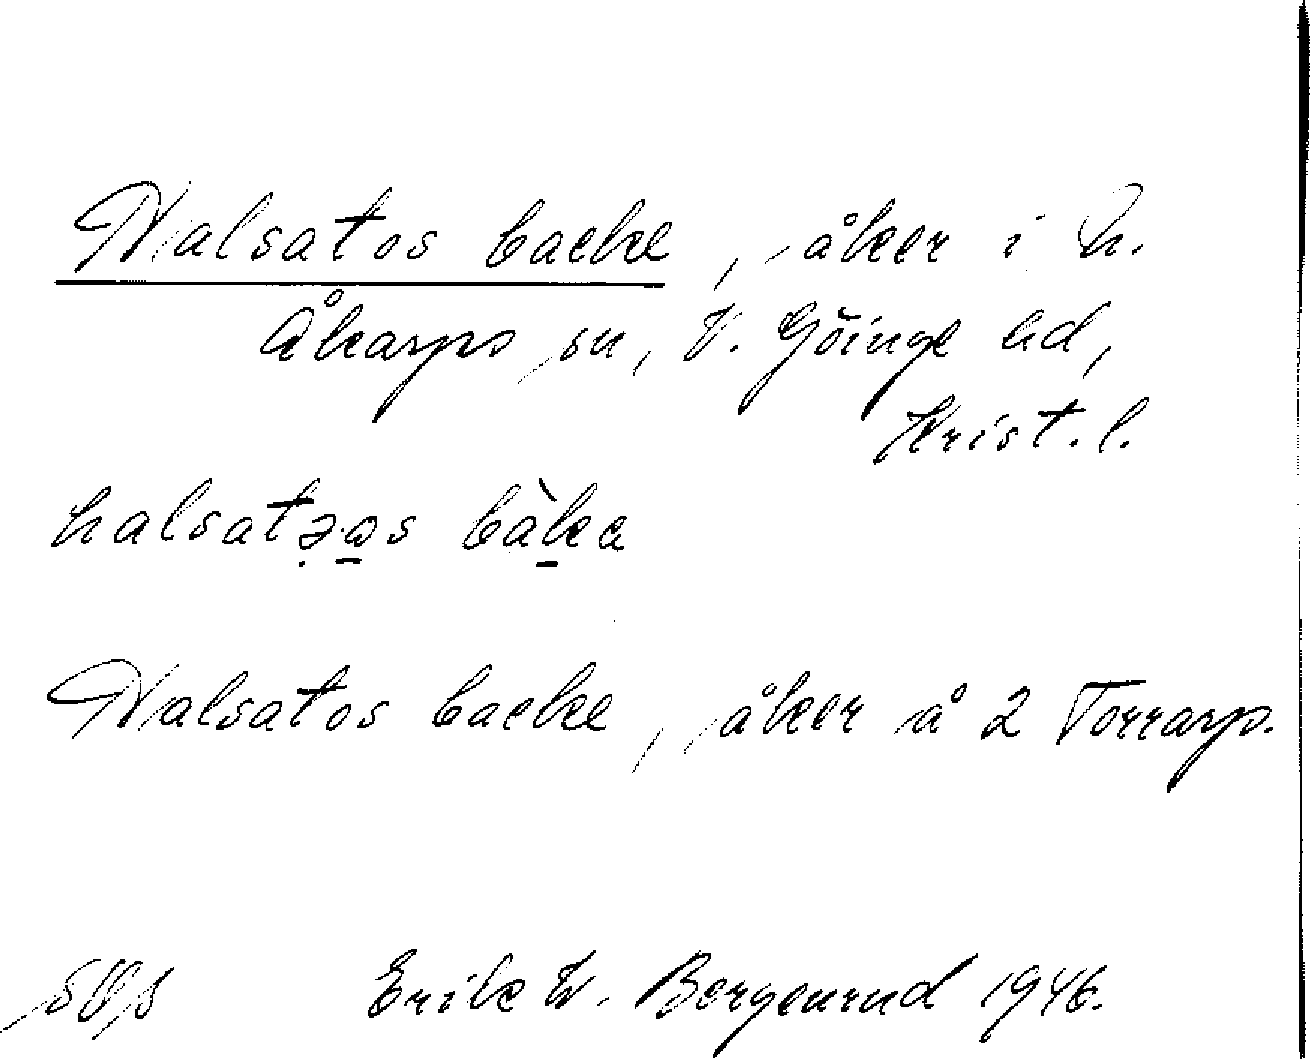 Halsatos backe, åker i N.
Åkarps sn, V. Göinge hd,
Krist. l.
halsatəos bàka
Halsatos backe, åker å 2 Torrarp.
Erik W. Bergenrud 1946.